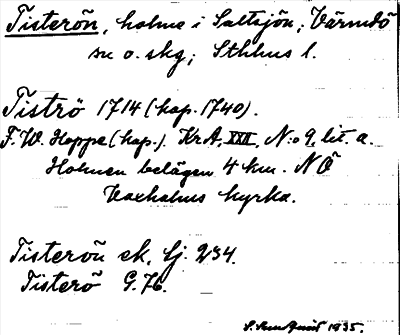 Tisterön, holme i Saltsjön, Värmdö
sn o. skg; Sthlms l.
Tiströ 1714 (kop. 1740).
F. W. Hoppe (kop.). Kr A, XXII, N:o 9, lit. a.
Holmen belägen 4 km. NÖ
Vaxholms kyrka.
Tisterön ek. bj. 234.
Tisterö G. 76.
1935.